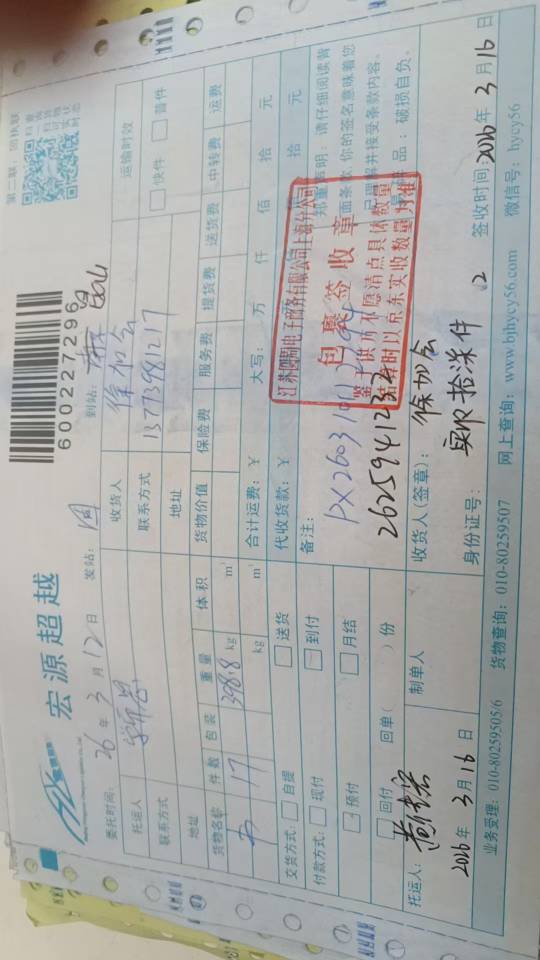 宏源超越
600227296
第二联：回执联
委托时间：26年3月12日 发站： 到站：
托运人 收货人 徐加会 运输时效
联系方式 联系方式 13773981217 快件 普件
地址 地址
货物名称 件数 包装 重量 体积 货物价值 保险费 服务费 提货费 送货费 中转费 运费
17 398.8 kg m³
kg m³ 合计运费：￥ 大写： 万 仟 佰 拾 元
交货方式： 自提 送货 代收货款：￥ 拾 元
付款方式： 现付 到付 备注：
预付 月结
回付 回单（ ）份
262594123
江苏圆周电子商务有限公司上海分公司
包裹签收章
鉴于供方不愿清点具体数量
结算时以京东实收数量为准
声明：请仔细阅读背
面条款，你的签名意味着您
并接受条款内容。
品：破损自负。
托运人： 制单人 收货人（签章）： 徐加会
2026年3月16日 身份证号： 实收拾柒件 签收时间：2026年3月16日
业务受理：010-80259505/6 货物查询：010-80259507 网上查询：www.bjhycy56.com 微信号：hycy56